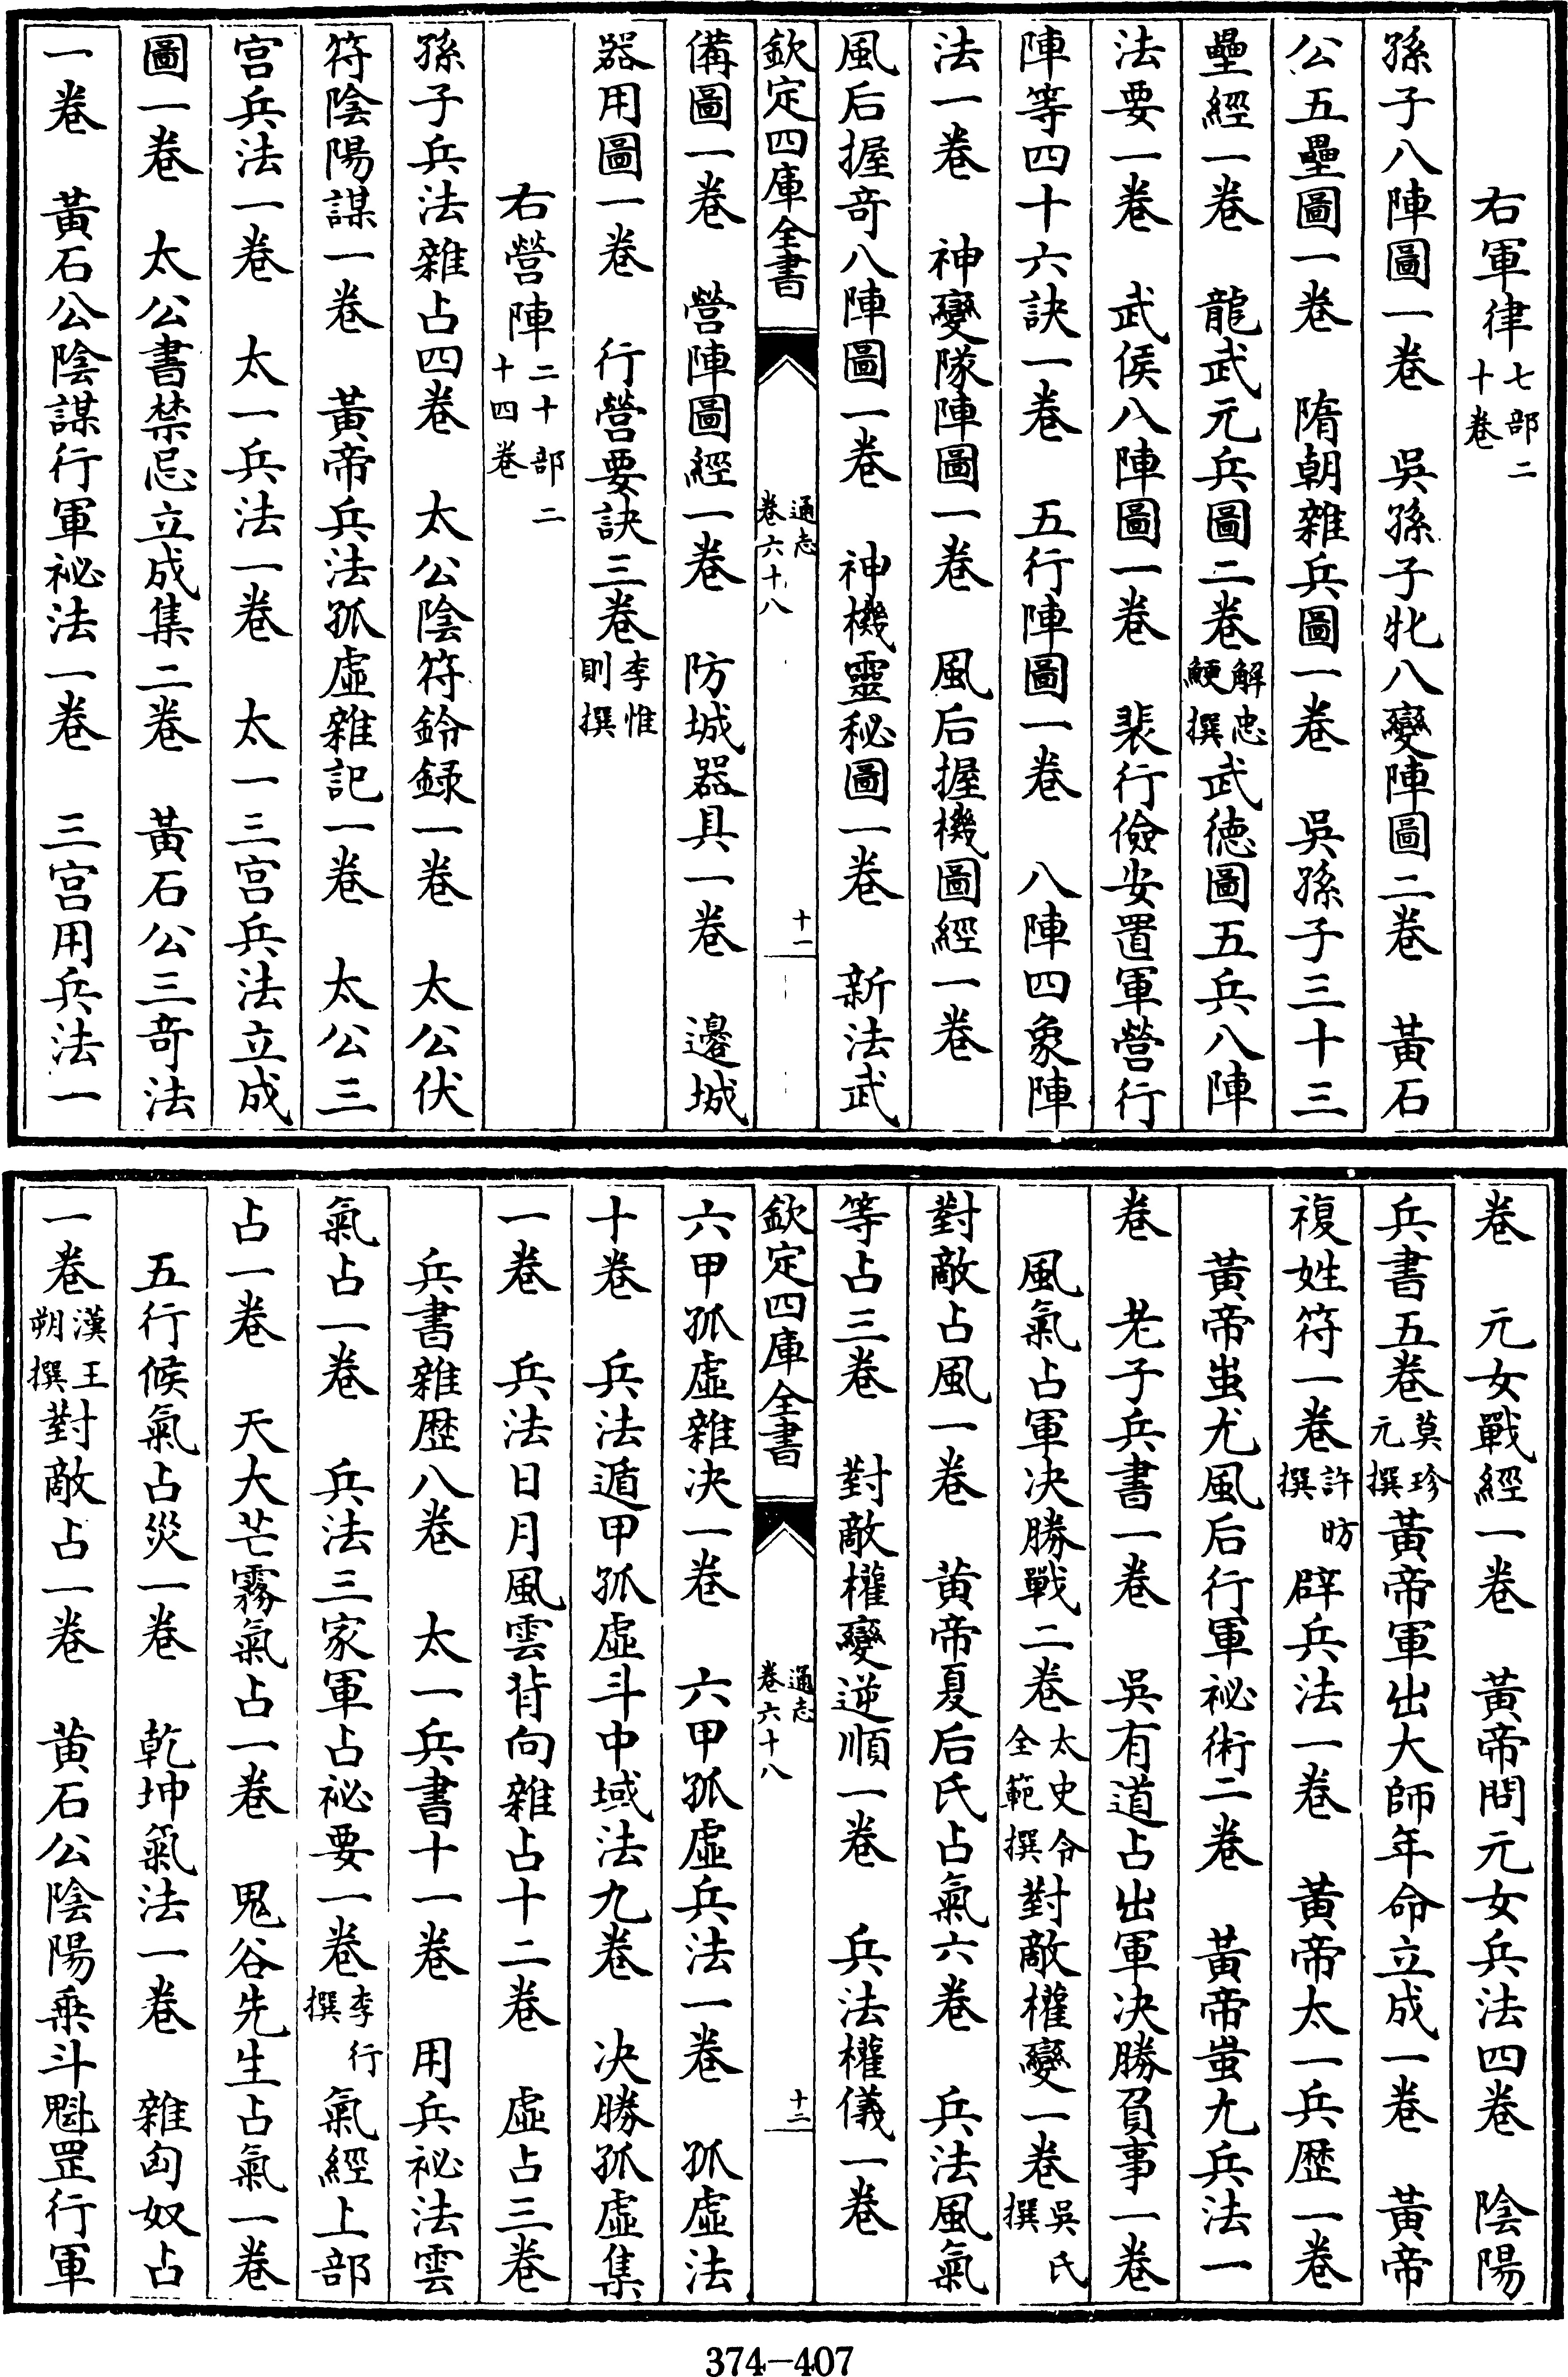 右軍律七部二十卷
孫子八陣圖一卷　吳孫子牝八變陣圖二卷　黃石
公五壘圖一卷　隋朝雜兵圖一卷　吳孫子三十三
壘經一卷　龍武元兵圖二卷解忠鯁撰武德圖五兵八陣
法要一卷　武侯八陣圖一卷　裴行儉安置軍營行
陣等四十六訣一卷　五行陣圖一卷　八陣四象陣
法一卷　神變隊陣圖一卷　風后握機圖經一卷
風后握奇八陣圖一卷　神機靈秘圖一卷　新法武
欽定四庫全書　通志卷六十八　十一
備圖一卷　營陣圖經一卷　防城器具一卷　邊城
器用圖一卷　行營要訣三卷李惟則撰
右營陣二十部二十四卷
孫子兵法雜占四卷　太公陰符鈐録一卷　太公伏
符陰陽謀一卷　黃帝兵法孤虛雜記一卷　太公三
宫兵法一卷　太一兵法一卷　太一三宫兵法立成
圖一卷　太公書禁忌立成集二卷　黃石公三奇法
一卷　黃石公陰謀行軍祕法一卷　三宫用兵法一
卷　元女戰經一卷　黃帝問元女兵法四卷　陰陽
兵書五卷莫珍元撰黃帝軍出大師年命立成一卷　黃帝
複姓符一卷許昉撰　辟兵法一卷　黃帝太一兵歴一卷
黃帝蚩尤風后行軍祕術二卷　黃帝蚩尤兵法一
卷　老子兵書一卷　吳有道占出軍决勝負事一卷
風氣占軍决勝戰二卷太史令全範撰對敵權變一卷吳氏撰
對敵占風一卷　黄帝夏后氏占氣六卷　兵法風氣
等占三卷　對敵權變逆順一卷　兵法權儀一卷
欽定四庫全書　通志卷六十八　十二
六甲孤虛雜决一卷　六甲孤虛兵法一卷　孤虛法
十卷　兵法遁甲孤虛斗中域法九卷　决勝孤虛集
一卷　兵法日月風雲背向雜占十二卷　虛占三卷
兵書雜歴八卷　太一兵書十一卷　用兵祕法雲
氣占一卷　兵法三家軍占祕要一卷李行撰　氣經上部
占一卷　天大芒霧氣占一卷　鬼谷先生占氣一卷
五行候氣占災一卷　乾坤氣法一卷　雜匈奴占
一卷漢王朔撰對敵占一卷　黄石公陰陽乘斗魁罡行軍
374-407